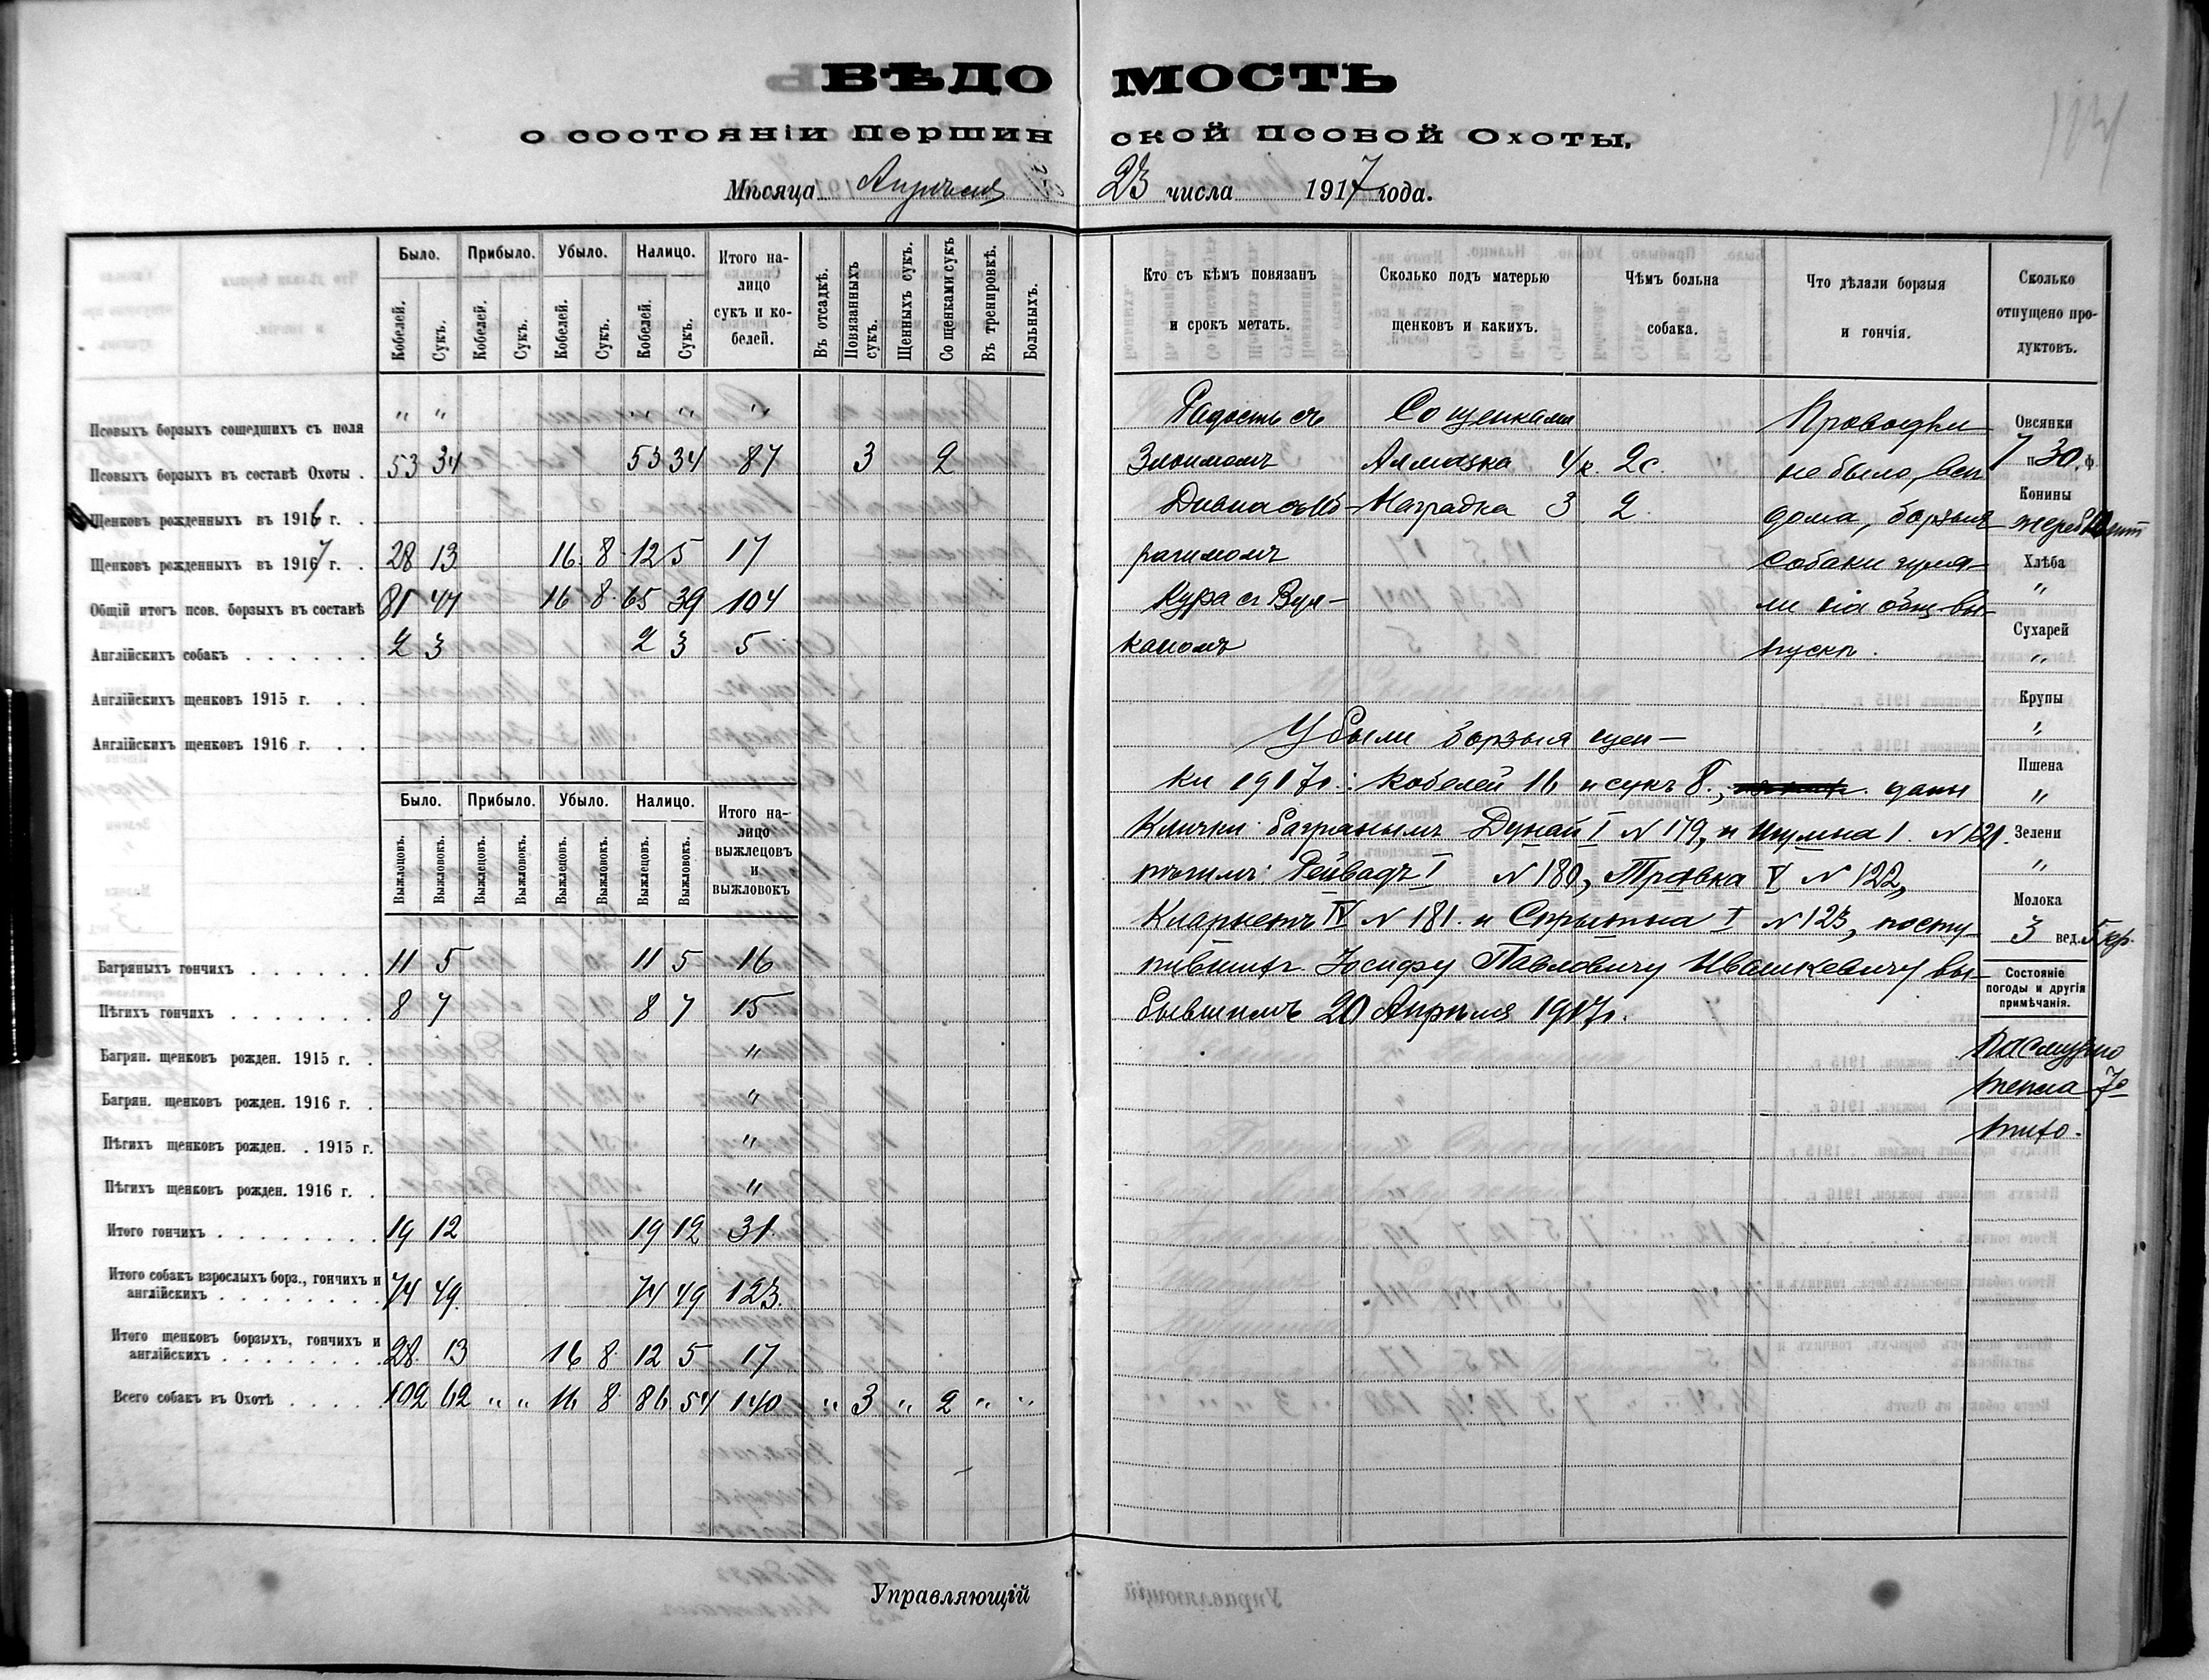 ВѢДОМОСТЬ
о состоянiи Першинской Псовой Охоты,
Мѣсяца Апрѣля 23 числа 1917 года.
Было. Прибыло. Убыло. Налицо. Итого на-
лицо
сукъ и ко-
белей.
Кобелей. Сукъ. Кобелей. Сукъ. Кобелей. Сукъ. Кобелей. Сукъ.
Въ отсадкѣ.
Повязанныхъ сукъ.
Щенныхъ сукъ.
Со щенками сукъ
Въ тренировкѣ.
Больныхъ.
Псовыхъ борзыхъ сошедшихъ съ поля " " " " "
Псовыхъ борзыхъ въ составѣ Охоты . 53 34 53 34 87 3 2
Щенковъ рожденныхъ въ 1916 г. .
Щенковъ рожденныхъ въ 1917 г. . 28 13 16 8 12 5 17
Общій итогъ псов. борзыхъ въ составѣ 81 47 16 8 65 39 104
Англійскихъ собакъ . . . . . . 2 3 2 3 5
Англійскихъ щенковъ 1915 г. . .
Англійскихъ щенковъ 1916 г. . .
Было. Прибыло. Убыло. Налицо. Итого на-
лицо
выжлецовъ
и
выжловокъ
Выжлецовъ. Выжловокъ. Выжлецовъ. Выжловокъ. Выжлецовъ. Выжловокъ. Выжлецовъ. Выжловокъ.
Багряныхъ гончихъ . . . . . . 11 5 11 5 16
Пѣгихъ гончихъ . . . . . . . 8 7 8 7 15
Багрян. щенковъ рожден. 1915 г. . "
Багрян. щенковъ рожден. 1916 г. . "
Пѣгихъ щенковъ рожден. . 1915 г. "
Пѣгихъ щенковъ рожден. 1916 г. . "
Итого гончихъ . . . . . . . . 19 12 19 12 31
Итого собакъ взрослыхъ борз., гончихъ и
англійскихъ . . . . . . . . 74 49 74 49 123.
Итого щенковъ борзыхъ, гончихъ и
англійскихъ . . . . . . . . 28 13 16 8 12 5 17
Всего собакъ въ Охотѣ . . . . . 102 62 " " 16 8 86 54 140 " 3 " 2 " "
Управляющій
Кто съ кѣмъ повязанъ
и срокъ метать.
Сколько подъ матерью
щенковъ и какихъ.
Чѣмъ больна
собака.
Что дѣлали борзыя
и гончія.
Сколько
отпущено про-
дуктовъ.
Радость съ
Злоимомъ
Дивна съ Иб-
рагимомъ
Кура съ Вул-
каномъ
Со щенками
Алмазка 4 к. 2 с.
Наградка 3 2
Проводки
не было, всѣ
дома, борзыя
собаки гуля-
ли на общ. вы-
пускѣ.
Овсянки
7 п 30 ф.
Конины
жереб
Хлѣба
"
Сухарей
"
Крупы
"
Пшена
"
Зелени
"
Молока
3 вед. 5 кр.
Состояніе
погоды и другія
примѣчанія.
Пасмурно
тепла 7°
тихо.
Убыли борзыя щен-
ки 1917 г.: кобелей 16 и сукъ 8., даны
Клички: багрянымъ Дунай I N 179, и N 121.
пѣгимъ: Рейвадъ I N 180, Травка V N 122,
Кларнетъ IV N 181. и I N 123, посту-
Іосифу Павловичу Ивашкевичу вы-
бывшимъ 20 Апрѣля 1917 г.